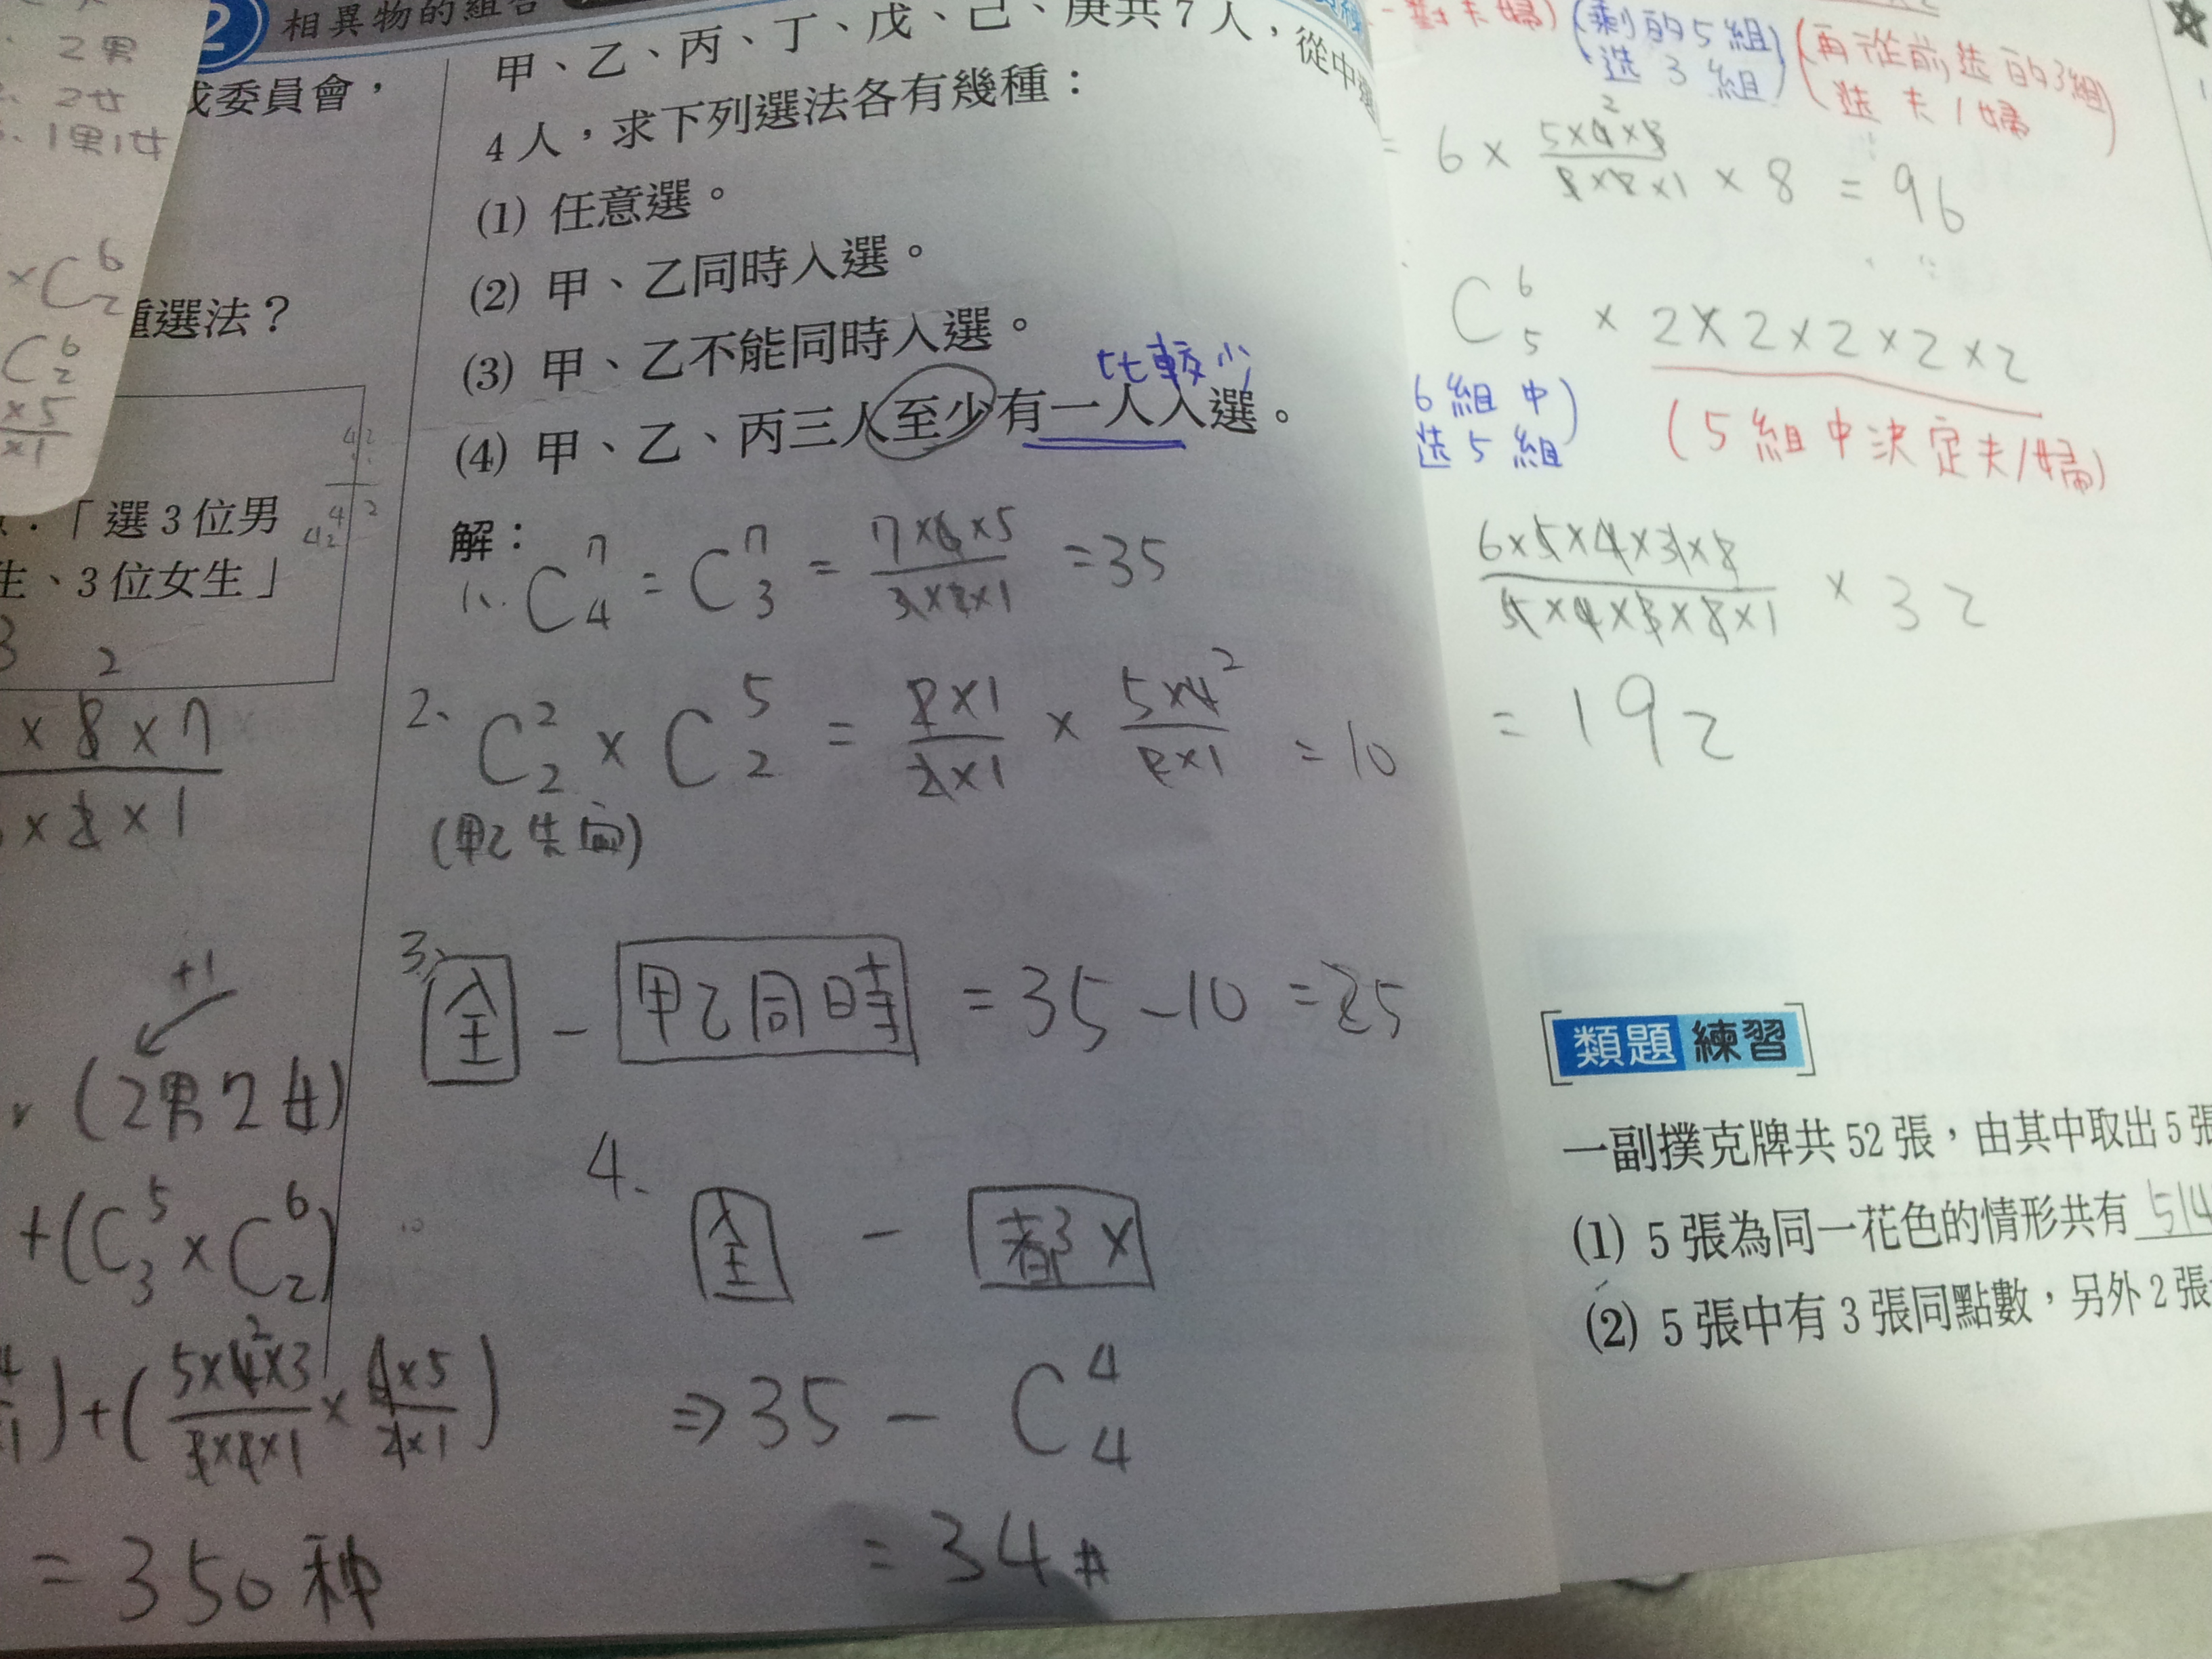 2 相異物的組合
2男
2女
1男1女
×C⁶₂
C⁶₂
×5
×1
成委員會，
重選法？
「選3位男
生、3位女生」
×8×7
×2×1
+1
(2男2女)
+(C⁵₃×C⁶₂)
)+(5×4×3/3×2×1×6×5/2×1)
=350種
甲、乙、丙、丁、戊、己、庚共7人，從中選
4人，求下列選法各有幾種：
(1) 任意選。
(2) 甲、乙同時入選。
(3) 甲、乙不能同時入選。
比較少
(4) 甲、乙、丙三人至少有一人入選。
解：
1、C⁷₄=C⁷₃=7×6×5/3×2×1=35
2、C²₂×C⁵₂=2×1/2×1×5×4/2×1=10
(甲乙先選)
3、全-甲乙同時=35-10=25
4、
全-都×
⇒35-C⁴₄
=34#
一對夫婦)(剩的5組(再從前選的3組
選3組)選夫/婦)
=6×5×4×3/3×2×1×8=96
C⁶₅×2×2×2×2×2
6組中
選5組)
(5組中決定夫/婦)
6×5×4×3×2/5×4×3×2×1×32
=192
類題練習
一副撲克牌共52張，由其中取出5張
(1) 5張為同一花色的情形共有514
(2) 5張中有3張同點數，另外2張